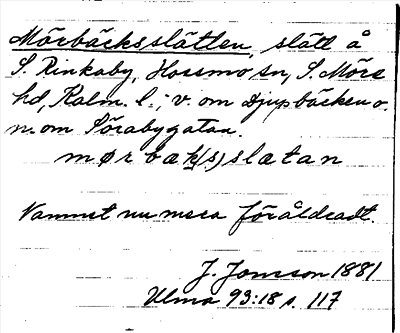 Mörbäcksslätten, slätt å
S. Rinkaby, Hossmo sn, S. Möre
hd, Kalm. l.; v. om Djupbäcken o.
n. om Sörabygatan.
mørbæk(s)slætan
Namnet numera föråldradt.
J. Jonsson 1881
Ulma 93:18 s. 117